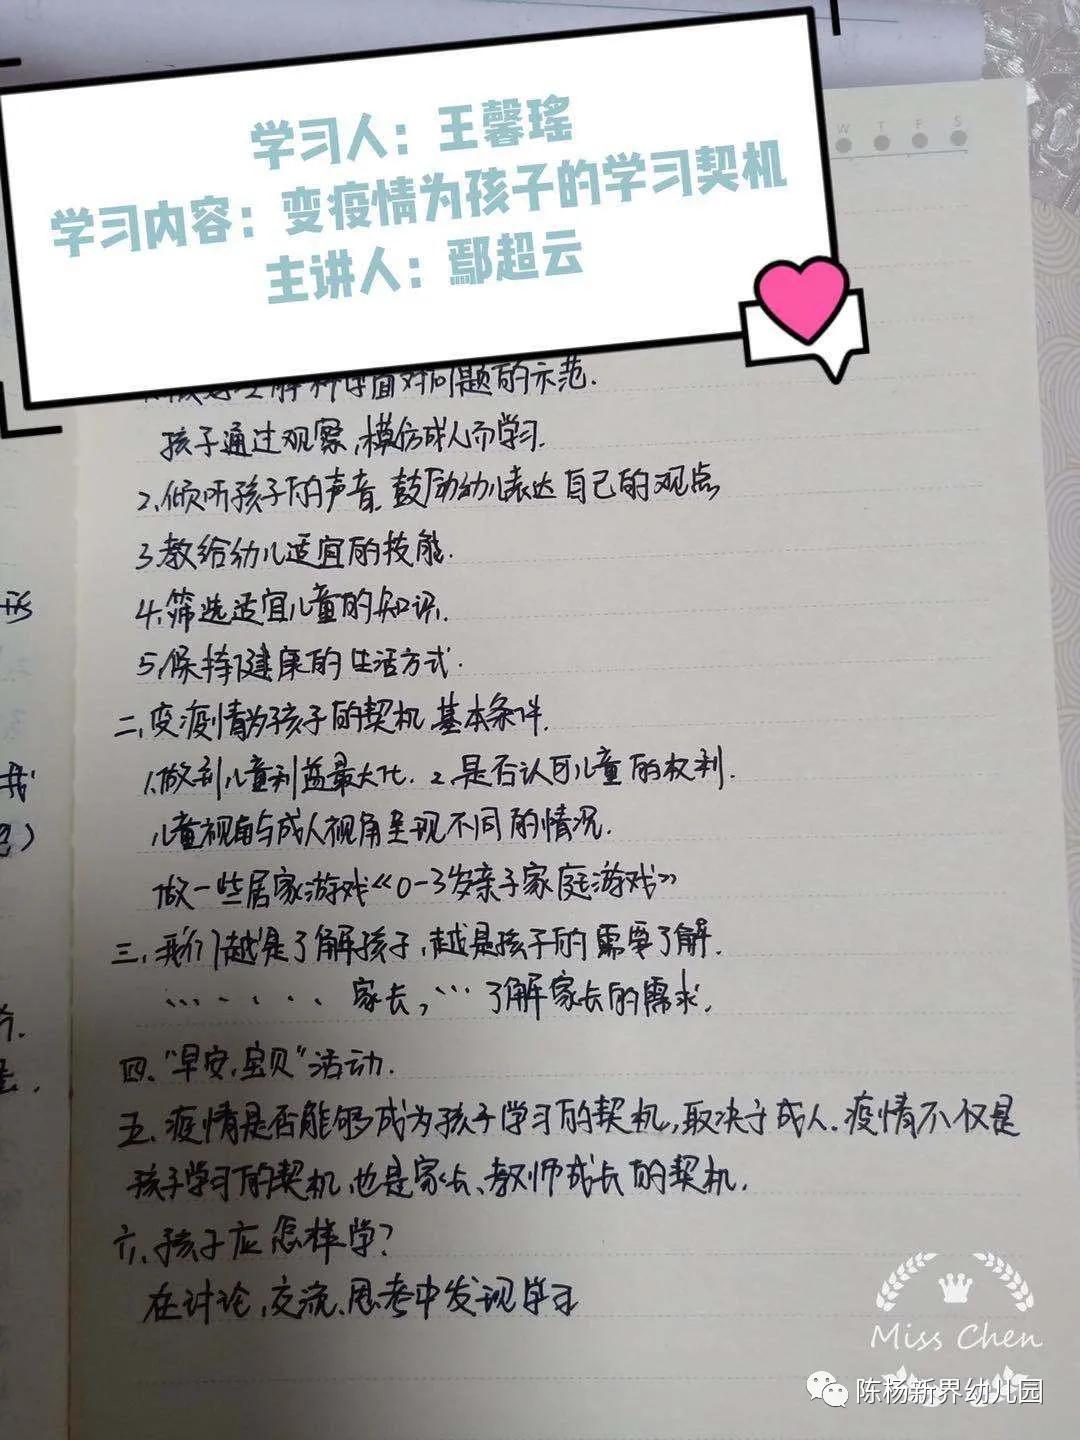 学习人：王馨瑶
学习内容：变疫情为孩子的学习契机
主讲人：鄢超云
W T F S
面对问题的示范.
孩子通过观察,模仿成人而学习.
2.倾听孩子的声音,鼓励幼儿表达自己的观点
3.教给幼儿适宜的技能.
4.筛选适宜儿童的知识.
5.保持健康的生活方式.
二、变疫情为孩子的契机,基本条件.
1.做到儿童利益最大化. 2.是否认可儿童的权利.
儿童视角与成人视角呈现不同的情况.
做一些居家游戏《0-3岁亲子家庭游戏》
三、我们越是了解孩子,越是孩子的需要了解.
…… 家长, … 了解家长的需求.
四、"早安,宝贝"活动.
五、疫情是否能够成为孩子学习的契机,取决于成人.疫情不仅是
孩子学习的契机,也是家长、教师成长的契机.
六、孩子应怎样学?
在讨论,交流,思考中发现学习
Miss Chen
陈杨新界幼儿园